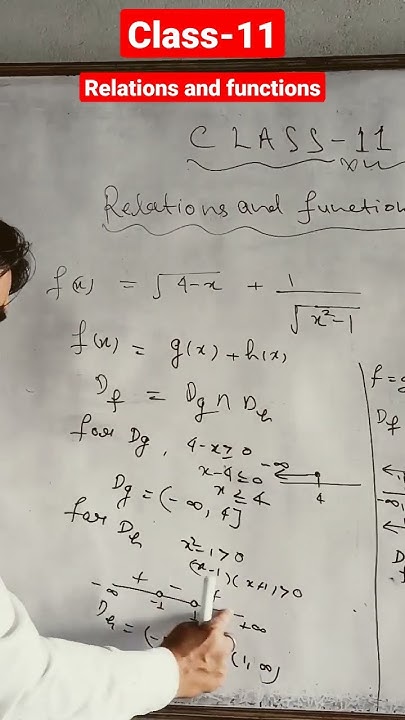 Class-11
Relations and functions
CLASS-11
Relations and function
f(x) = √4-x + 1/√x²-1
f(x) = g(x) + h(x)
D_f = D_g ∩ D_h
for D_g, 4-x ≥ 0
x-4 ≤ 0
x ≤ 4
-∞ 4
D_g = (-∞, 4]
for D_h
x²-1 > 0
(x-1)(x+1) > 0
-∞ + -1 - + +∞
D_h = (- (1, ∞)
f =
D_f